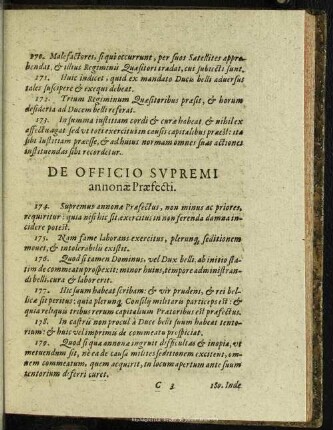 170. Malefactores, si qui occurrunt, per suos Satellites appre-
hendat, & illius Regiminis Quæsitori tradat, cui subiecti sunt.
171. Huic indicet, quid ex mandato Ducis belli aduersus
tales suscipere & exequi debeat.
172. Trium Regiminum Quæsitoribus præsit, & horum
desideria ad Ducem belli referat.
173. In summa iustitiam cordi & curæ habeat & nihil ex
affectu agat sed vt toti exercitui in causis capitalibus præest: ita
sibi iustitiam præesse, & ad huius normam omnes suas actiones
instituendas sibi recordetur.
DE OFFICIO SVPREMI
annonæ Præfecti.
174. Supremus annonæ Præfectus, non minus ac priores,
requiritur: quia nisi hic sit, exercitus in non ferenda damna in-
cidere poteit.
175. Nam fame laborans exercitus, plerunq; seditionem
mouet, & intolerabilis existit.
176. Quod si tamen Dominus, vel Dux belli, ab initio sta-
tim de commeatu prospexit: minor huius, tempore administran-
di belli, cura & labor erit.
177. Hic suum habeat scribam: & vir prudens, & rei bel-
licæ sit peritus: quia plerunq; Consilij militaris particeps est: &
quia reliquis tribus rerum capitalium Prætoribus est præfectus.
178. In castris non procul à Duce belli suum habeat tento-
rium: & huic vel imprimis de commeatu prospiciat.
179. Quod si qua annonæ ingruit difficultas & inopia, vt
metuendum sit, ne ea de causa milites seditionem excitent, om-
nem commeatum, quem acquirit, in locum apertum ante suum
tentorium deferri curet.
C 3 180. Inde